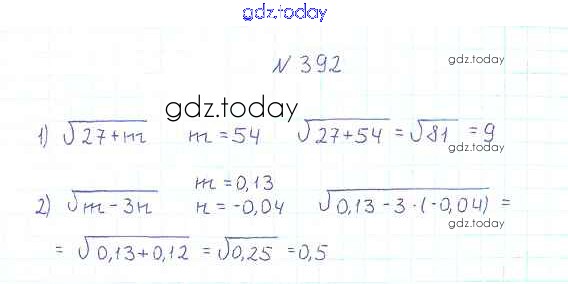 gdz.today
N 392
gdz.today
gdz.today
1) √27+m m = 54 √27+54 = √81 = 9
gdz.today
2) √m - 3n m = 0,13 n = -0,04 √0,13 - 3 · (-0,04) =
= √0,13+0,12 = √0,25 = 0,5
gdz.today